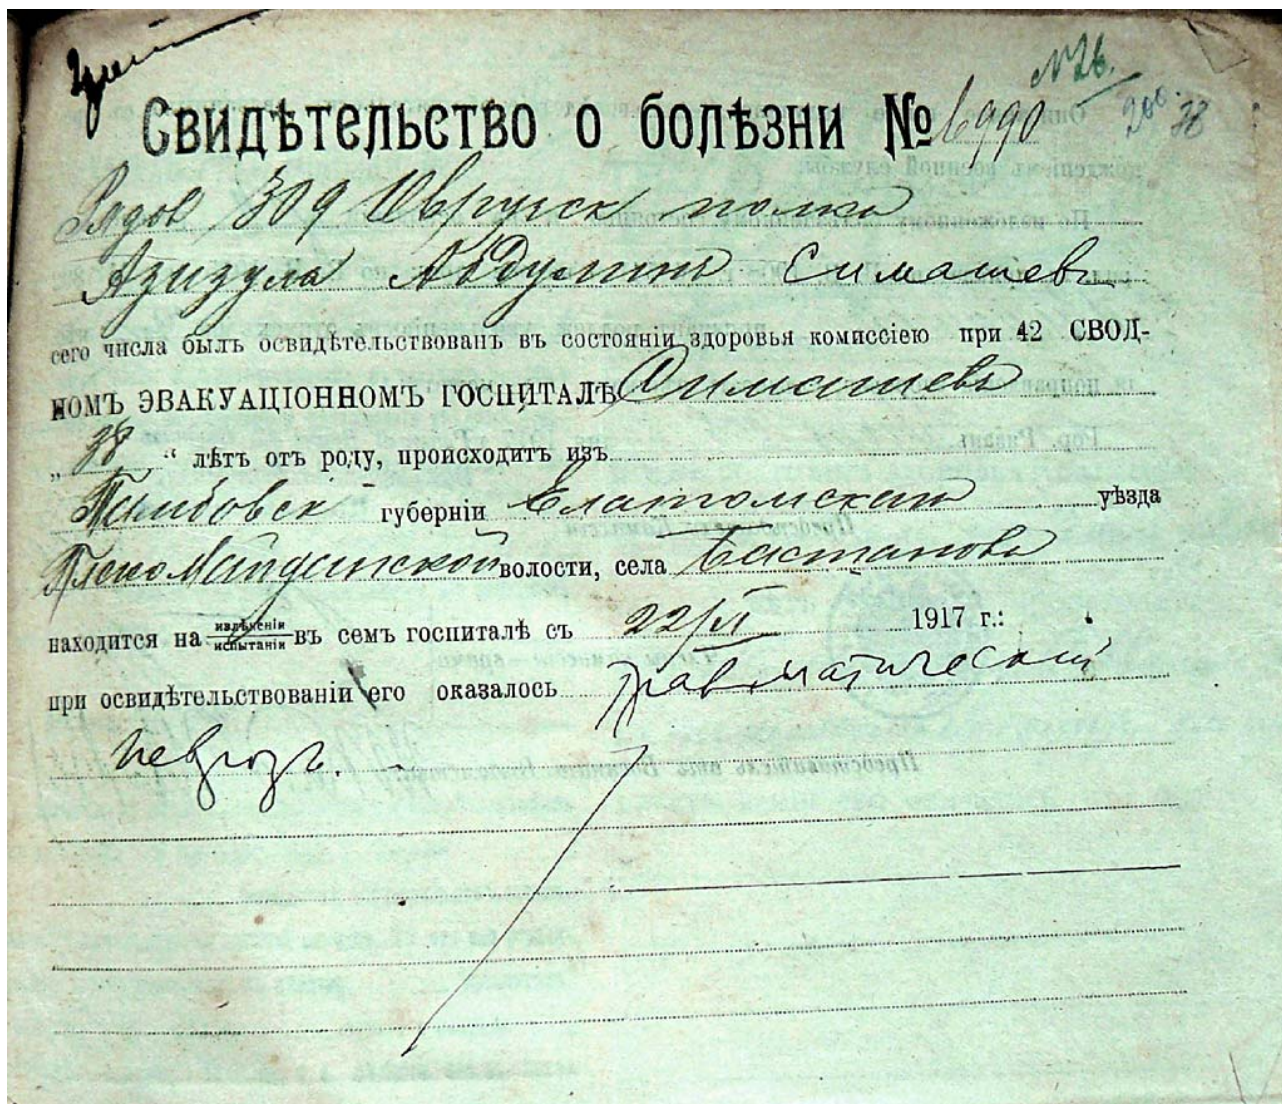 № 26.
Свидѣтельство о болѣзни № 6990
38
Рядов 309 Овручск полка
Азизула Абдулин Симашевъ
сего числа былъ освидѣтельствованъ въ состояніи здоровья комиссіею при 42 СВОД-
НОМЪ ЭВАКУАЦІОННОМЪ ГОСПИТАЛѢ Симашевъ
„38“ лѣтъ отъ роду, происходитъ изъ
Тамбовск губерніи Елатомскаго уѣзда
Майданской волости, села Бастанова
находится на излѣченіи испытаніи въ семъ госпиталѣ съ 22/II 1917 г.:
при освидѣтельствованіи его оказалось травматическій
неврозъ.